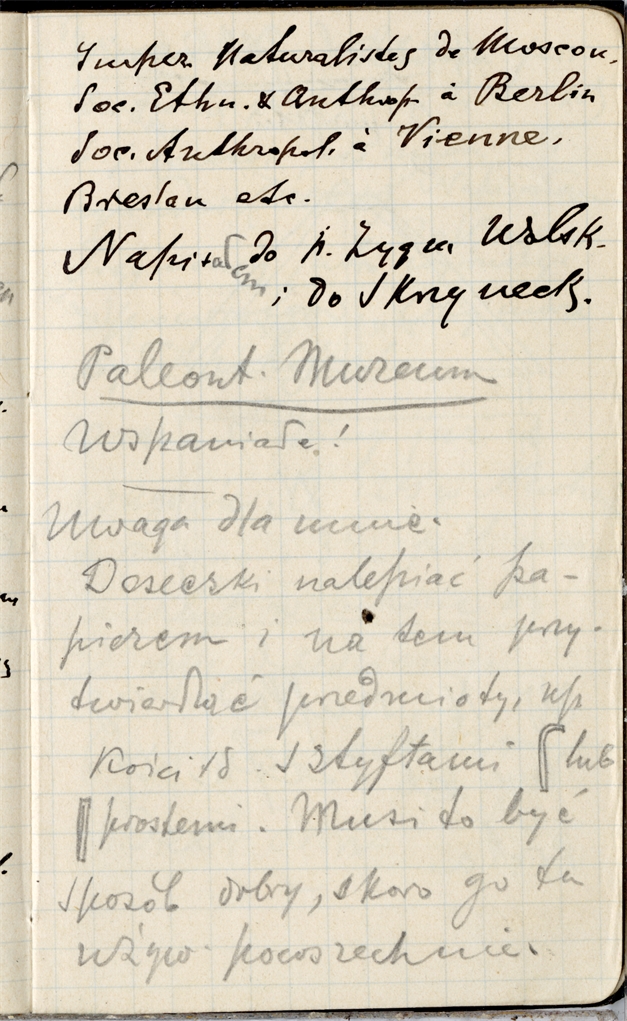 Imper. Naturalistes de Moscou,
Soc. Ethn. & Anthrop à Berlin
Soc. Anthropol. à Vienne,
Breslau etc.
Napisałem do p. Zygm Wolsk-
i do Skrzyneck.
Paleont. Muzeum
Wspaniałe!
Uwaga dla mnie.
Deseczki nalepiać pa-
pierem i na tem przy-
twierdzać przedmioty, np
Kości itd. sztyftami lub
prostemi. Musi to być
sposób dobry, skoro go tu
używ powszechnie.